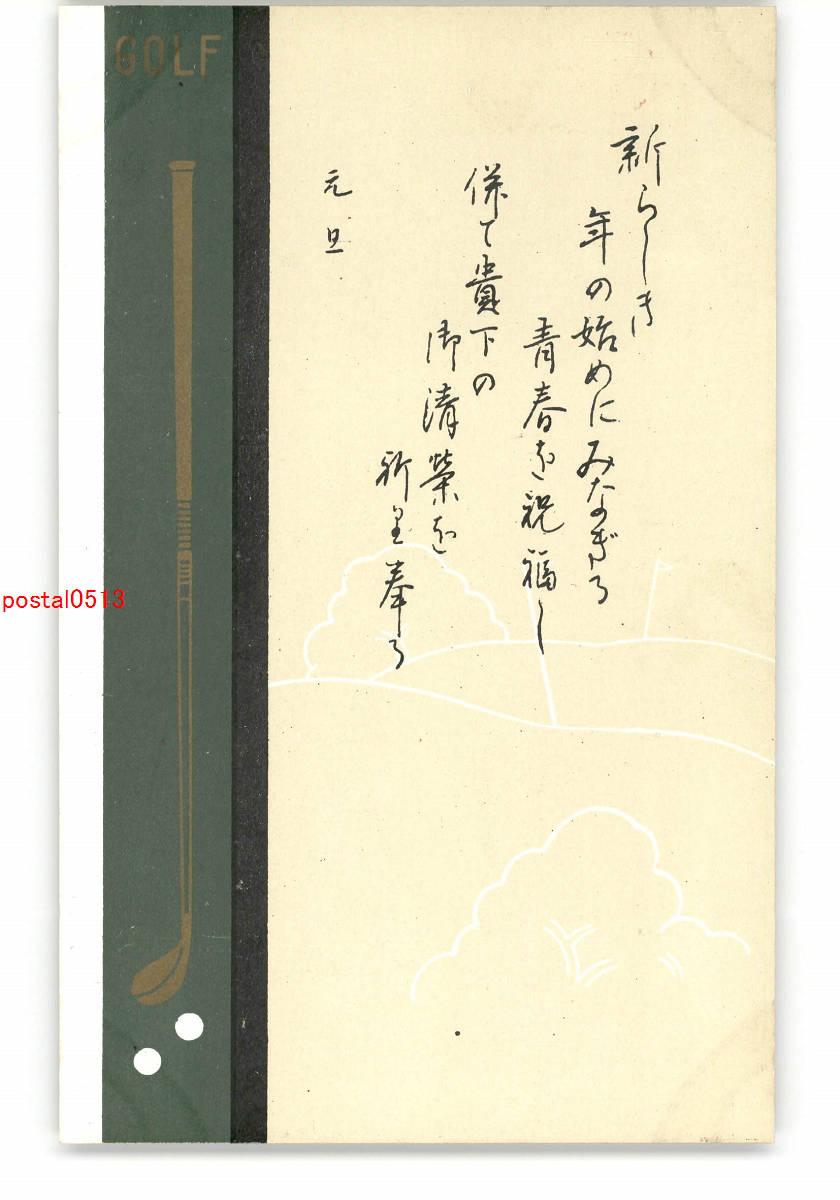 GOLF
新らしき
年の始めにみなぎる
青春を祝福し
併て貴下の
御清栄を
祈里奉る
元旦
postal0513